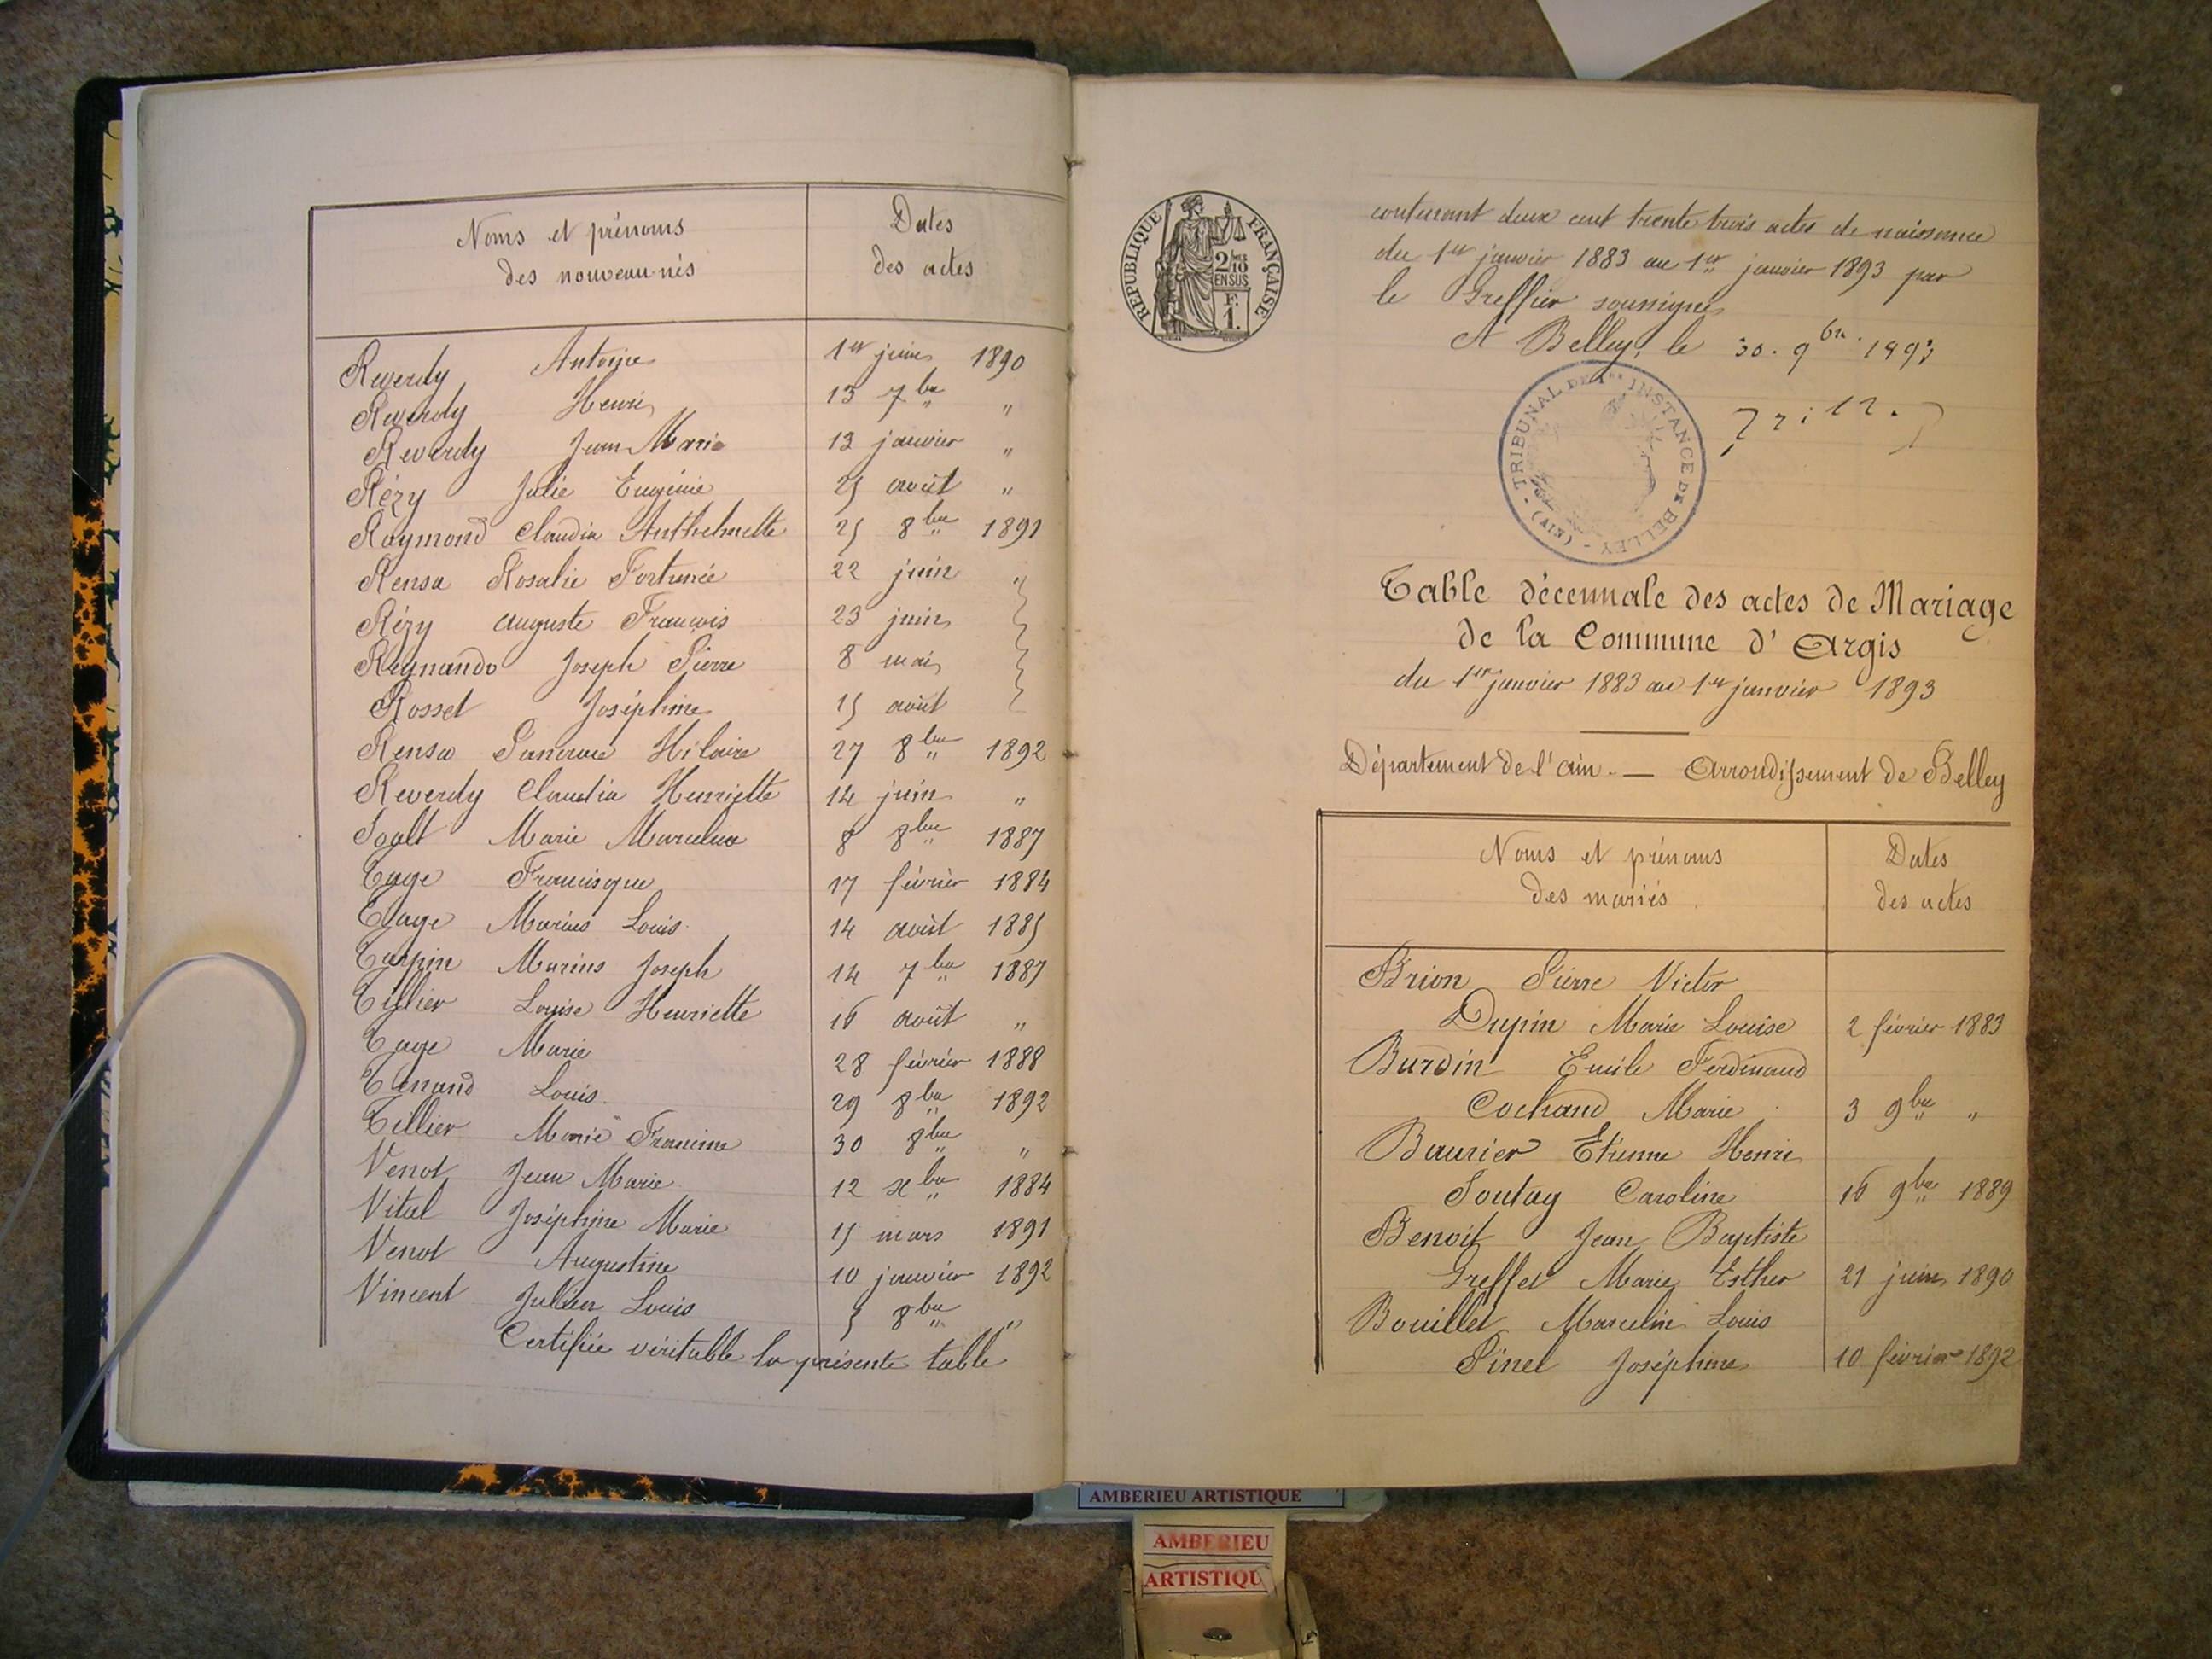 Noms et prénoms
des nouveau-nés
Dates
des actes
Reverdy Antoine 1er juin 1890
Reverdy Henri 13 7bre "
Reverdy Jean Marie 13 janvier "
Rézy Julie Eugénie 25 août "
Raymond Claudia Anthelmette 25 8bre 1891
Rensa Rosalie Fortunée 22 juin "
Rézy auguste François 23 juin
Reynando Joseph Pierre 8 mai
Rosset Joséphine 15 août
Rensa Hilaire 27 8bre 1892
Reverdy Claudia Henriette 14 juin "
Marie 8 8bre 1887
Tage Francisque 17 février 1884
Tage Marius Louis 14 août 1885
Turpin Marius Joseph 14 7bre 1887
Tillier Louise Henriette 16 août "
Tage Marie 28 février 1888
Tenand Louis 29 8bre 1892
Tillier Marie Francine 30 8bre "
Venot Jean Marie 12 xbre 1884
Vital Joséphine Marie 15 mars 1891
Venot Augustine 10 janvier 1892
Vincent Julien Louis 5 8bre "
Certifiée véritable la présente table
REPUBLIQUE FRANÇAISE
2/10
EN SUS
F.
1.
contenant deux cent trente trois actes de naissance
du 1er janvier 1883 au 1er janvier 1893 par
le Greffier soussigné
A Belley, le 30. 9bre 1893
TRIBUNAL DE 1re INSTANCE DE BELLEY - (AIN) -
Table décennale des actes de Mariage
de la Commune d'Argis
du 1er janvier 1883 au 1er janvier 1893
Département de l'ain. — Arrondissement de Belley
Noms et prénoms
des mariés
Dates
des actes
Brion Pierre Victor
Dupin Marie Louise 2 février 1883
Burdin Emile Ferdinand
Cochand Marie 3 9bre "
Baurier Etienne Henri
Caroline 16 9bre 1889
Benoit Jean Baptiste
Greffet Marie Esther 21 juin 1890
Bouillet Marcelin Louis
Pinel Joséphine 10 février 1892
AMBERIEU ARTISTIQUE
AMBERIEU
ARTISTIQU